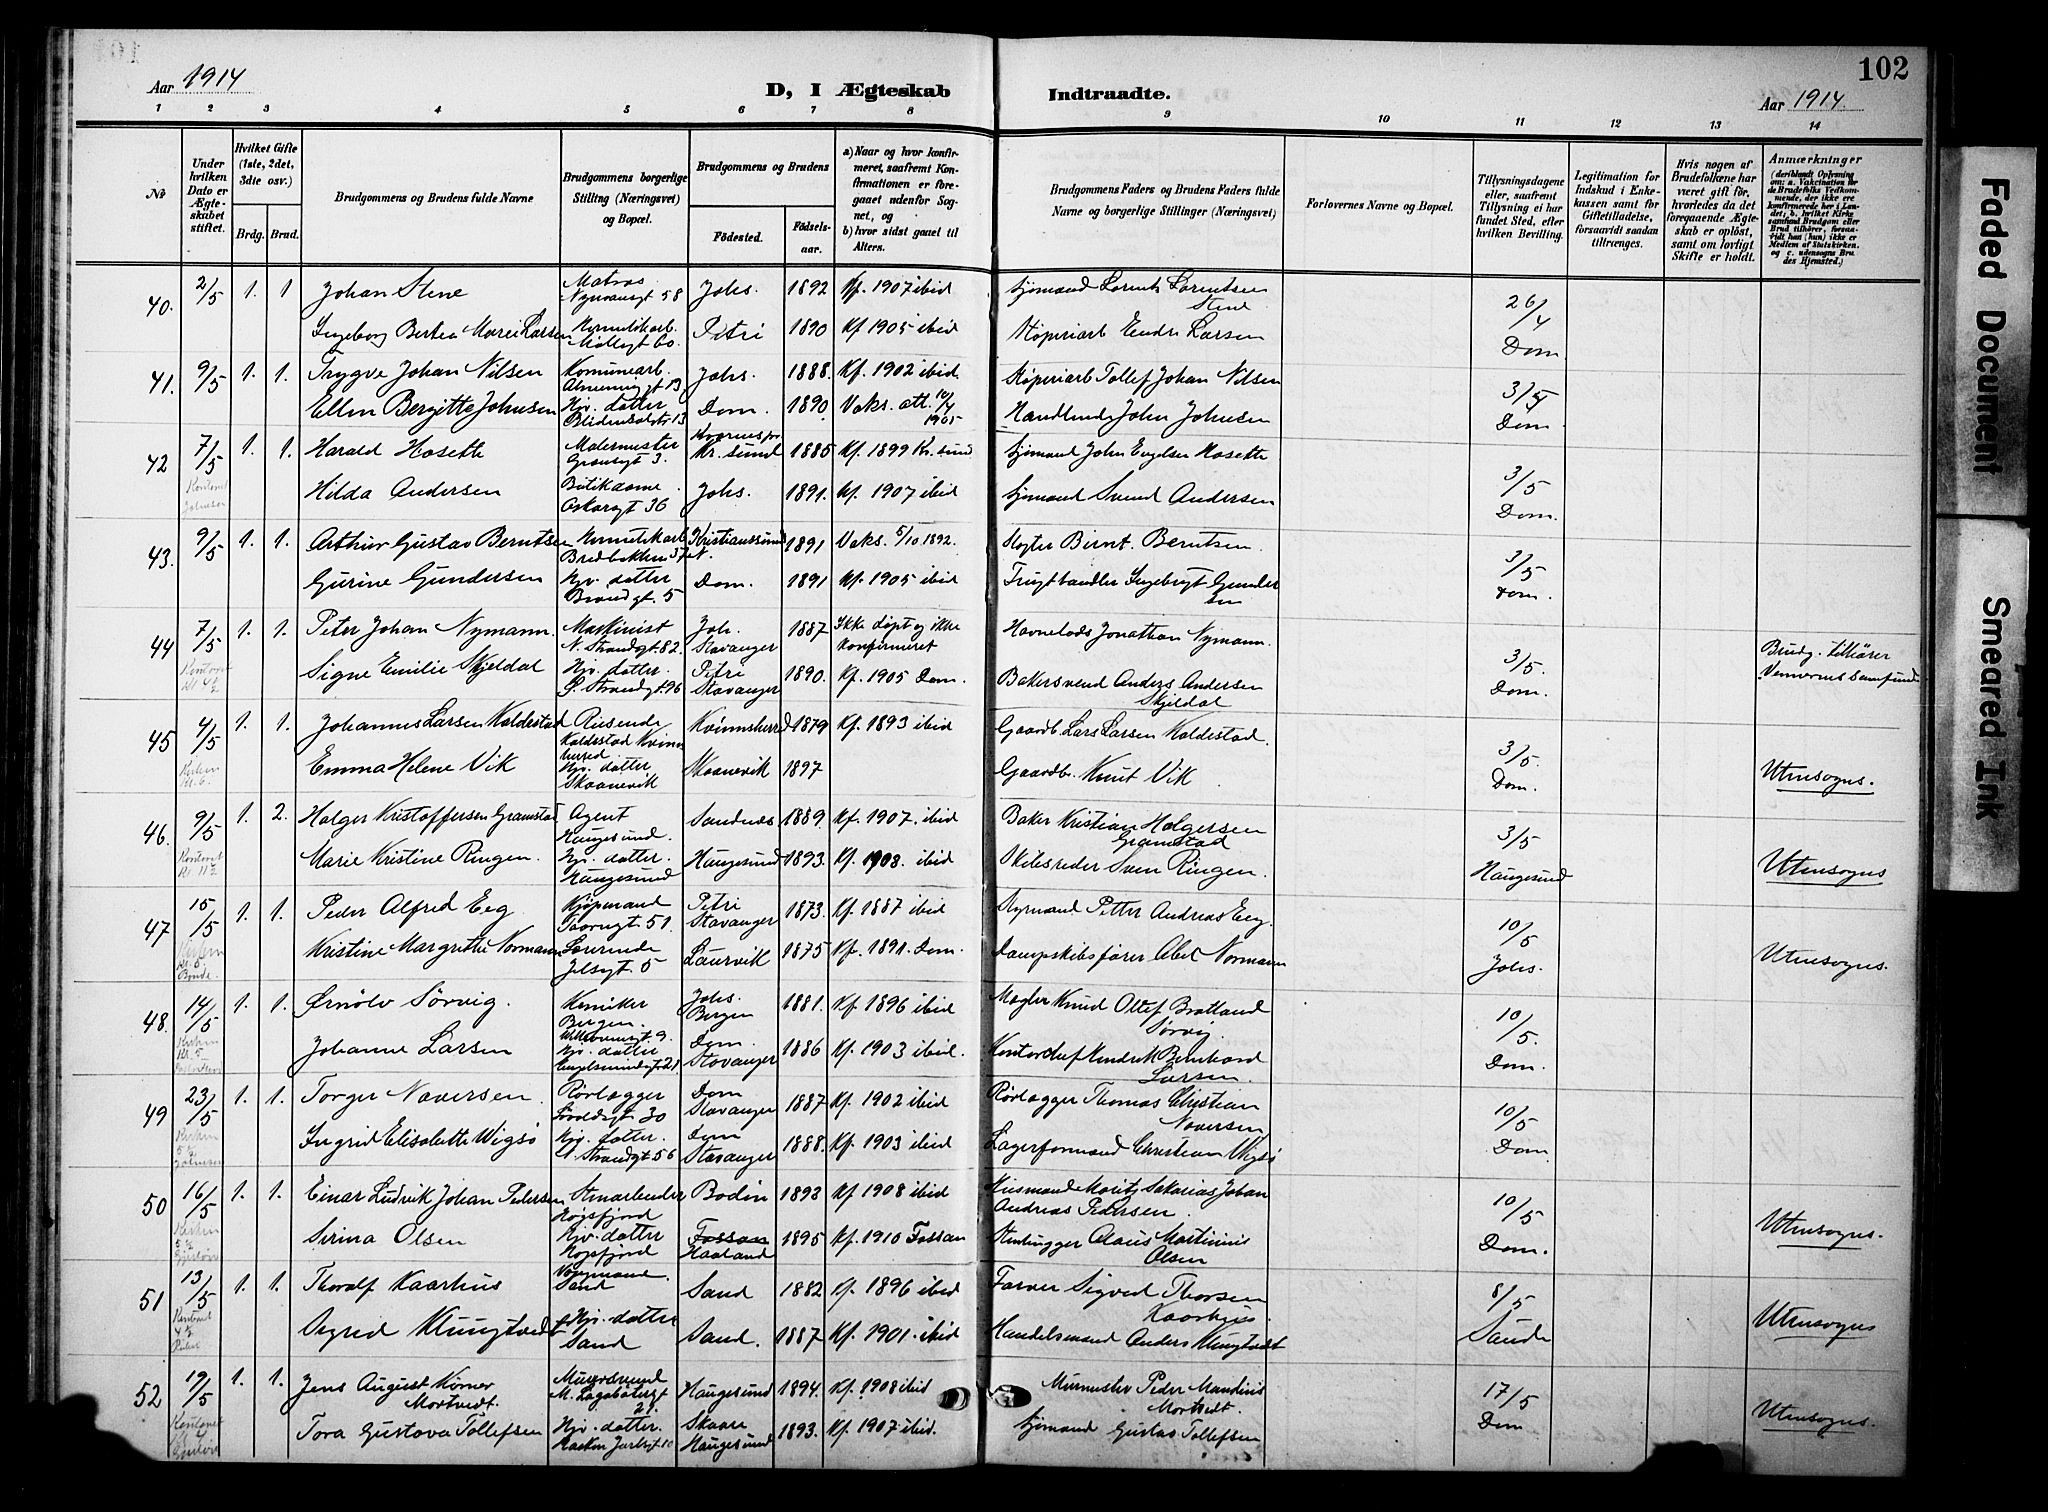 102
Aar 1914
D, I Ægteskab Indtraadte.
Aar 1914.
1 2 3 4 5 6 7 8 9 10 11 12 13 14
№
Under hvilken Dato er Ægteskabet stiftet.
Hvilket Gifte (1ste, 2det, 3die osv.)
Brdg. Brud.
Brudgommens og Brudens fulde Navne
Brudgommens borgerlige Stilling (Næringsvei) og Bopæl.
Brudgommens og Brudens
Fødested.
Fødselsaar.
a) Naar og hvor konfirmeret, saafremt Konfirmationen er foregaaet udenfor Sognet, og
b) hvor sidst gaaet til Alters.
Brudgommens Faders og Brudens Faders fulde Navne og borgerlige Stillinger (Næringsvei)
Forlovernes Navne og Bopæl.
Tillysningsdagene eller, saafremt Tillysning ei har fundet Sted, efter hvilken Bevilling.
Legitimation for Indskud i Enkekassen samt for Giftetilladelse, forsaavidt saadan tiltrænges.
Hvis nogen af Brudefolkene har været gift før, hvorledes da det foregaaende Ægteskab er opløst, samt om lovligt Skifte er holdt.
Anmærkninger (deriblandt Oplysning om: a. Vaccination for de Brudefolks Vedkommende, der ikke ere konfirmerede her i Landet; b. hvilket Kirkesamfund Brudgom eller Brud tilhører, forsaavidt han (hun) ikke er Medlem af Statskirken, og c. udensogns Brudes Hjemsted.)
40. 2/5 1. 1 Johan Stene Matros Nymansgt 58 Johs. 1892 Kf. 1907 ibid Sjømand Lorents Lorentsen Stene 26/4 Dom.
Ingeborg Bertea Marei Larsen Hermetikarb. Møllegt 60 Petri 1890 Kf 1905 ibid Støperiarb Endre Larsen
41. 9/5 1. 1. Trygve Johan Nilsen Komunearb. Almenninggt 13 Johs. 1888. Kf. 1902 ibid. Støperiarb Tollef Johan Nilsen 3/5 Dom.
Ellen Bergitte Johnsen Hjv. datter Dom. 1890 Vaks. att. 10/4 1905 Handlende John Johnsen
42 7/5 1. 1. Harald Hosette Malermester Gransgt 3. Kr.sund 1885 Kf. 1899 Kr.sund Sjømand John Engelsen Hosette 3/5 Dom.
Kontoret Johnson Hilda Andersen Butikdame Oskarsgt 36 Johs. 1891. Kf. 1907 ibid Sjømand Svend Andersen
43. 9/5 1. 1. Arthur Gustav Berntsen Hermetikarb Bredbakken 37 Kristianssund N. 1891 Vaks. 5/10 1892. Bernt Berntsen. 3/5 Dom.
Gurine Gundersen Hjv. datter Brandgt. 5 Dom. 1891 Kf. 1905 ibid Frugthandler Ingebrgt Gundersen
44 7/5 1. 1. Peter Johan Nymann. Maskinist N. Strandgt 82 Joh. Stavanger 1887 Ikke døpt og ikke konfirmeret Havnelods Jonathan Nymann. 3/5. Dom. Brudg. tilhører Vennernes samfund
Kontoret Kl 4½ Signe Emilie Skjeldal Hjv. datter. Ø. Strandgt. 96 Petri Stavanger 1890. Kf. 1905 Dom. Bakersvend Anders Andersen Skjeldal
45 4/5 1. 1. Johannes Larsen Kaldestad Reisende Kaldestad Kvinnherred Kvinnsherred 1879 Kf. 1893 ibid Gaardb. Lars Larsen Kaldestad. 3/5. Dom.
Kirken Kl. 6. Emma Helene Vik Hjv. datter Skaanevik Skaanevik 1897 Gaardb. Knut Vik Utensogns.
46. 9/5 1. 2. Holger Kristoffersen Gramstad Agent Haugesund. Sandnes 1889. Kf. 1907. ibid Baker Kristian Holgersen Gramstad 3/5 Haugesund
Kontoret Kl 11½ Marie Kristine Ringen. Hjv. datter. Haugesund Haugesund 1893. Kf. 1908. ibid Skibsreder Sven Ringen. Utensogns
47 15/5 1. 1. Peder Alfred Eeg Kjøpmand Taarngt 51. Petri Stavanger 1873. Kf. 1887 ibid Styrmand Petter Andreas Eeg. 10/5 Johs.
Kirken Kl. 5. Bonde. Kristine Margrethe Normann Lærerinde Jelsgt. 5 Laurvik 1875 Kf. 1891. Dom. Dampskibsfører Abel Normann Utensogns.
48. 14/5 1. 1. Ørnölv Sørvig. Kemiker Bergen. Johs. Bergen 1881. Kf. 1896 ibid Mægler Knud Ollef Bratland Sørvig 10/5. Dom.
Kirken Kl. 5 Johanne Larsen Hjv. datter Dom. Stavanger 1886 Kf. 1903 ibid. Kontorchef Hendrik Bernhard Larsen.
49 23/5 1. 1. Torger Naversen. Rørlægger 30 Dom Stavanger 1887 Kf. 1902 ibid Rørlægger Thomas Christian Naversen 10/5 Dom.
Kirken 5½ Johnsen Ingrid Elisabeth Wigsø Hjv. datter. N. Strandgt. 56 Dom Stavanger 1888. Kf. 1903 ibid Lagerformand Christian Wigsø
50 16/5 1. 1. Einar Ludvik Johan Pedersen Stenarbeider Høgsfjord Bodin 1893 Kf 1908 ibid Husmand Moritz Sakarias Johan Andreas Pedersen. 10/5 Dom.
Kirken 5½ Sirina Olsen Hjv. datter Høgsfjord Fossan Haaland 1895 Kf. 1910 Fossan Stenhugger Olaus Martinius Olsen Utensogns.
51 13/5 1. 1. Thoralf Kaarhus Sand Sand 1882 Kf. 1896 ibid Farver Sigved Thorsen Kaarhus. 8/5 Sande
Kontoret 4½ Sigrid Klungtvedt Hjv. datter Sand Sand. 1887 Kf. 1901. ibid Handelsmand Anders Klungtvedt Utensogns
52 19/5 1. 1. Jens August Kømer Mortvedt. Murersvend M. Lagabøtersgt 21. Haugesund 1894. Kf. 1908 ibid Murmester Peder Mandius Mortvedt. 17/5 Dom
Kontoret Kl 4 Tora Gustava Tollefsen Hjv. datter. Haakon Jarlsgt 10 Skaare Haugesund 1893. Kf. 1907 ibid. Sjømand Gustav Tollefsen Utensogns.
Faded Document
Smeared Ink